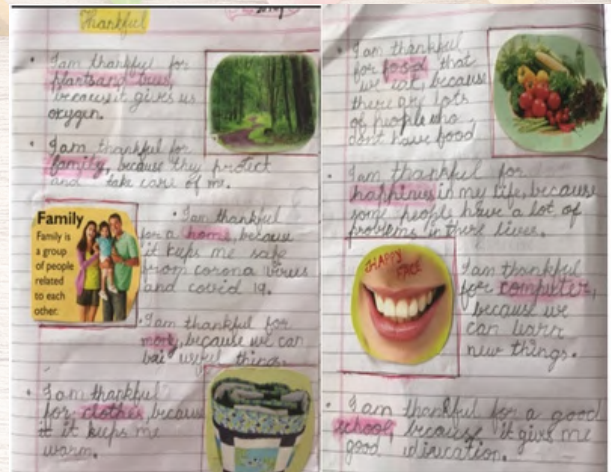 Thankful
• I am thankful for
plants and trees,
because it gives us
oxygen.
• I am thankful for
family, because they protect
and take care of me.
Family
Family is
a group
of people
related
to each
other.
• I am thankful
for a home, because
it keeps me safe
from corona virus
and covid 19.
• I am thankful for
mony, because we can
bai useful things.
• I am thankful
for clothes, because
it it keeps me
warm.
• I am thankful
for food that
we eat, because
there are lots
of people who
don't have food
• I am thankful for
happines in my life, because
some people have a lot of
problems in there lives.
HAPPY
FACE
I am thankful
for computer,
because we
can learn
new things.
• I am thankful for a good
school, because it gives me
good iducation.